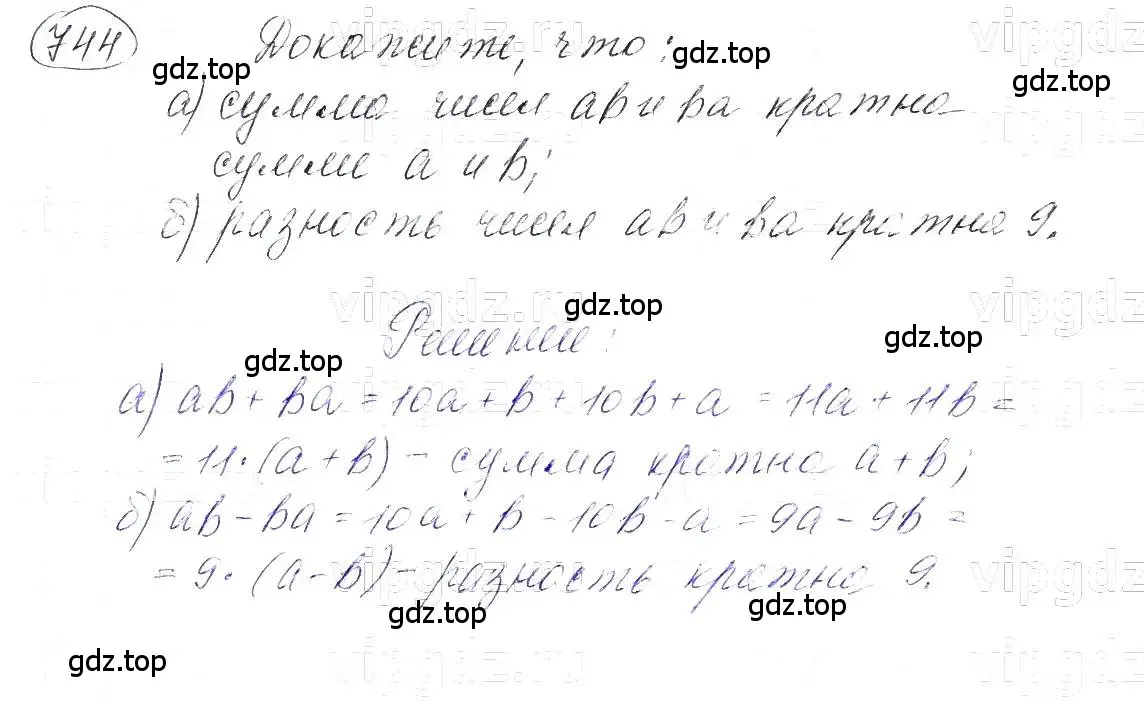 744 Докажите, что:
а) сумма чисел ab и ba кратна
сумме a и b;
б) разность чисел ab и ba кратна 9.
Решение:
а) ab + ba = 10a + b + 10b + a = 11a + 11b =
= 11·(a + b) – сумма кратна a + b;
б) ab – ba = 10a + b – 10b – a = 9a – 9b =
= 9·(a – b) – разность кратна 9.
gdz.top
gdz.top
gdz.top
gdz.top
gdz.top
gdz.top
gdz.top
gdz.top
gdz.top
vipgdz.ru
vipgdz.ru
vipgdz.ru
vipgdz.ru